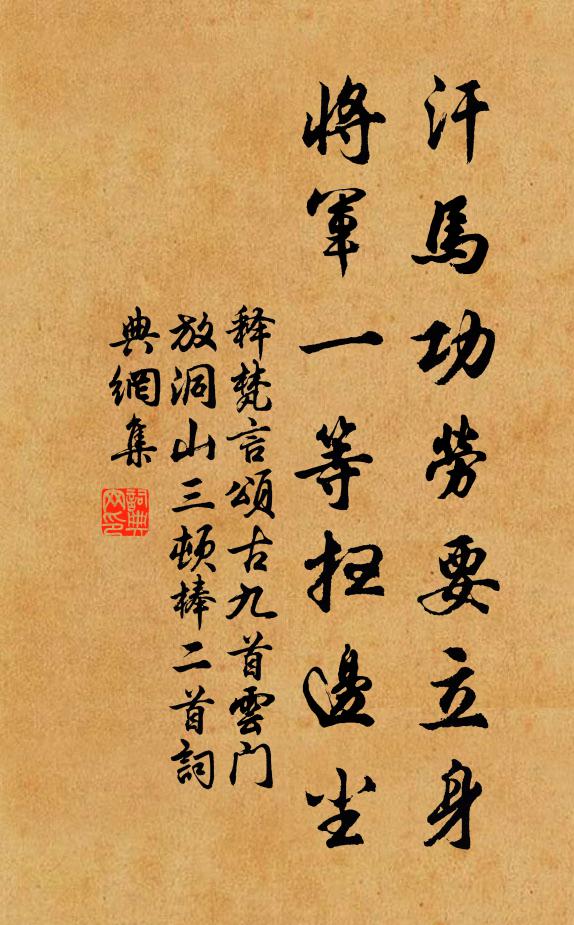 汗馬功勞要立身
將軍一等邊尘
释梵言頌古九首雲门
放洞山三頓棒二首詞
典網集
詞典
网印